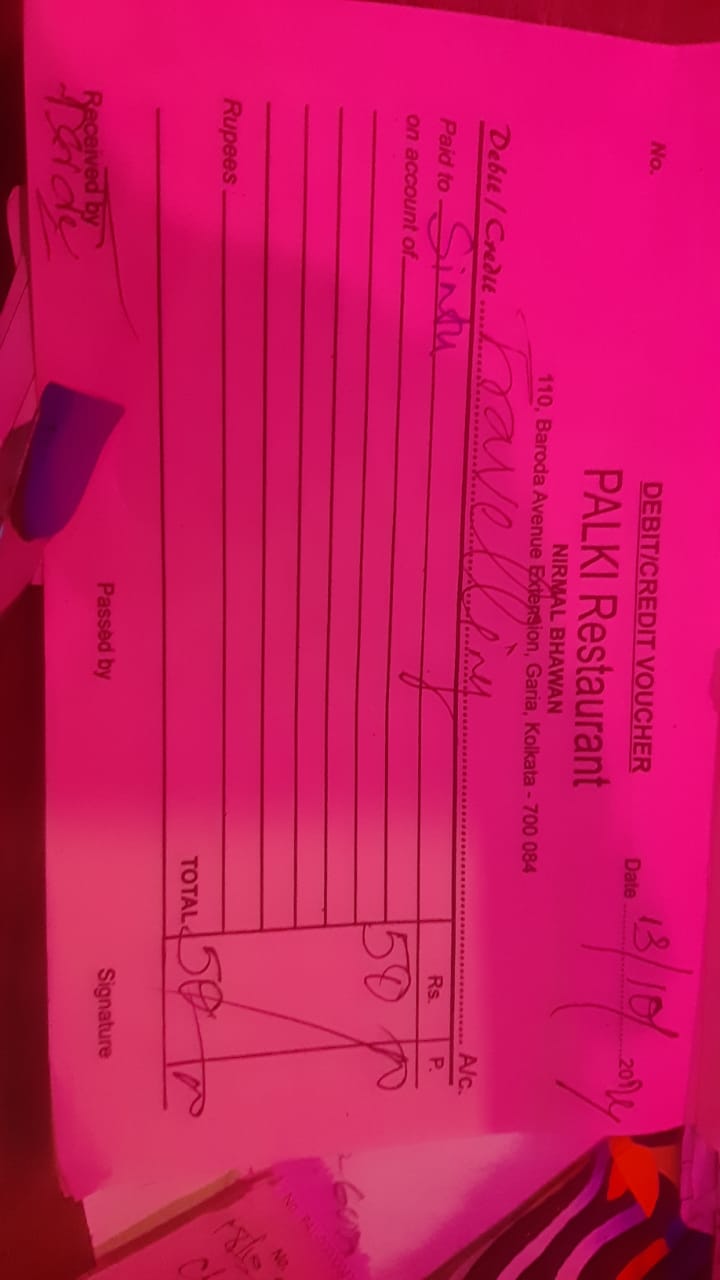 DEBIT/CREDIT VOUCHER
No.
Date 13/10/2024
PALKI Restaurant
NIRMAL BHAWAN
110, Baroda Avenue Extension, Garia, Kolkata - 700 084
Debit / Credit Travelling A/c.
Paid to Sintu Rs. P.
on account of
50
Rupees
TOTAL 50
Received by Passed by Signature
No.